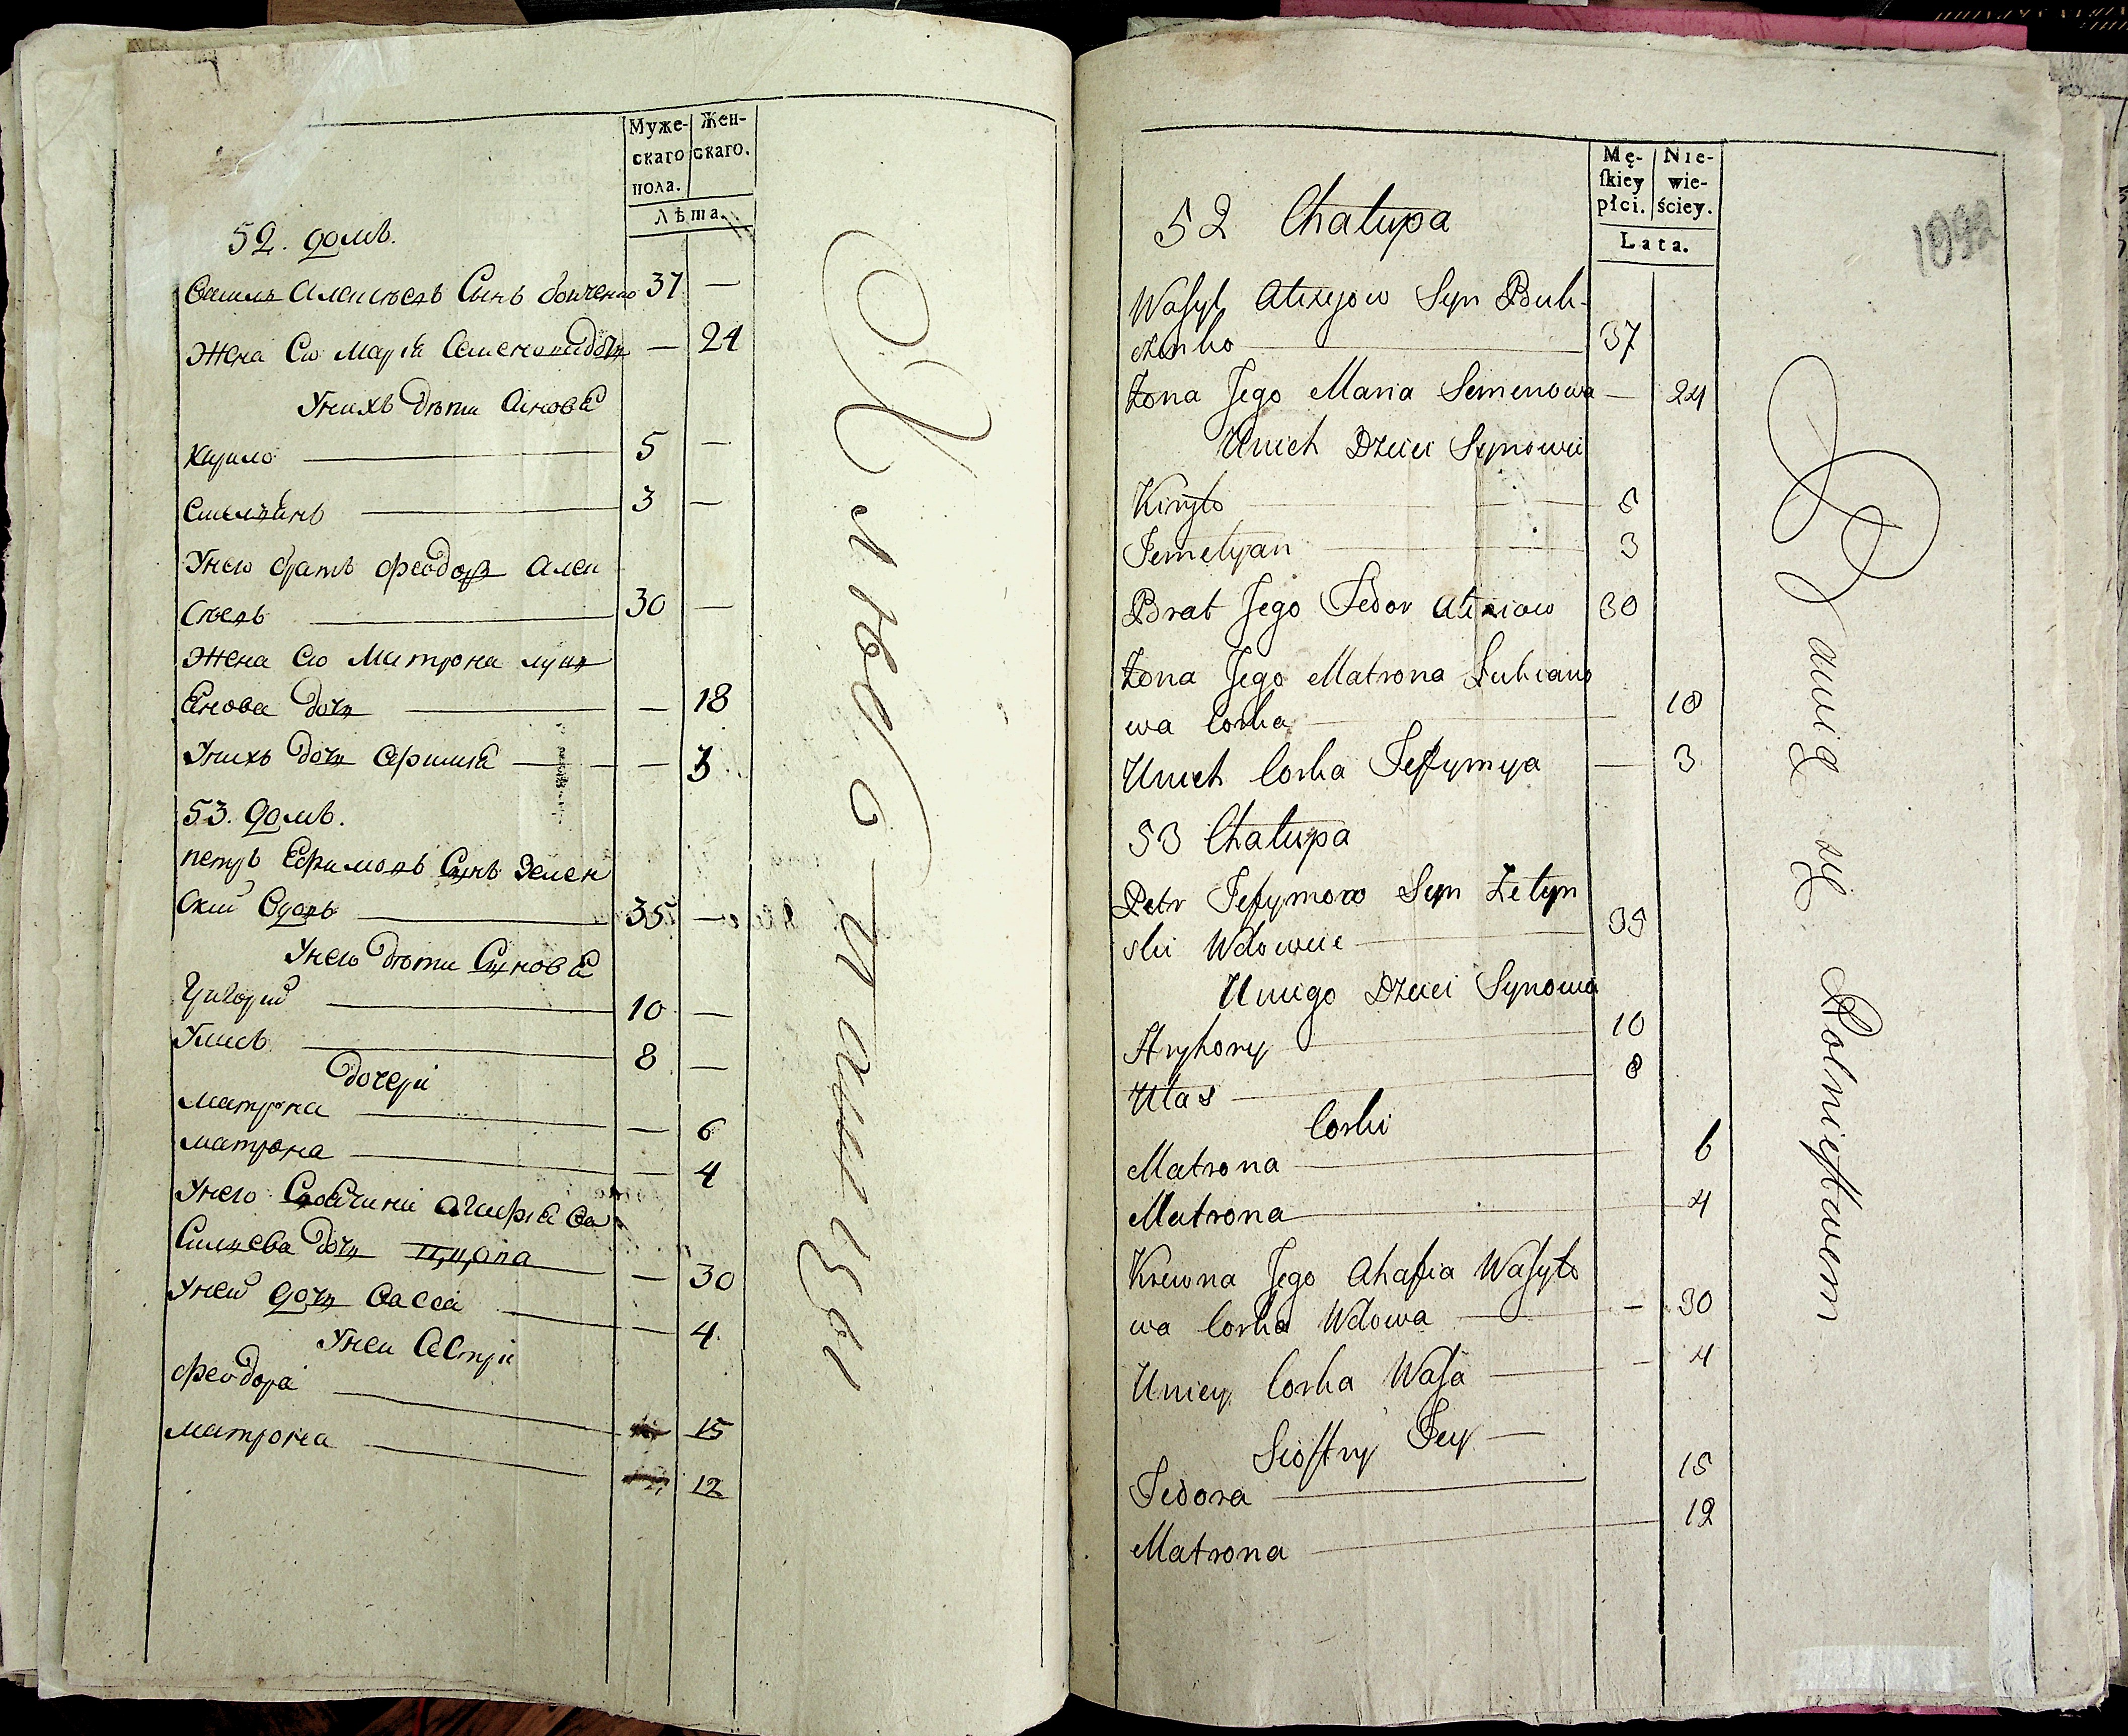 Муже-
скаго
пола.
Жен-
скаго.
Лѣта.
52. домъ.
Алексѣевъ Сынъ 37 —
Жена Ево Марія Семенова дочь — 24
У нихъ дѣти Синовя
Кирило 5 —
Емельянъ 3 —
У него братъ Феодоръ Алек
сѣевъ 30 —
Жена Ево Матрона Лукъ
янова дочь — 18
У нихъ дочь Ефимия — 3
53. домъ.
петръ Ефимовъ Сынъ Зелен
ский вдовъ 35 —
У него дѣти Сыновя
Григорий 10 —
Уласъ 8 —
дочери
Матрона — 6
матрона — 4
У него Агафія Ва
силиева дочь — 30
У ней дочь Васса — 4.
У неи Сестри
Феодора 15
матрона 12
Mę-
skiey
płci.
Nie-
wie-
ściey.
Lata.
1092
52 Chałupa
Wasyl Alexejow Syn Buh-
czenko 37
Żona Jego Maria Semenowa — 24
Unich Dzieci Synowie
Kiryło 5
Jemelyan 3
Brat Jego Fedor Alexiow 30
Żona Jego Matrona Łukiano
wa Corka 18
Unich Corka Jeffymya — 3
53 Chałupa
Petr Jefymow Syn Zelyn
ski Wdowiec 35
Uniego Dzieci Synowie
Hryhory 10
Ułas 8
Corki
Matrona 6
Matrona 4
Krewna Jego Ahafia Wasyło
wa Corka Wdowa — 30
Uniey Corka Wasa — 4
Siostry Jey —
Fedora 15
Matrona 12
Bawią się Rolnictwem